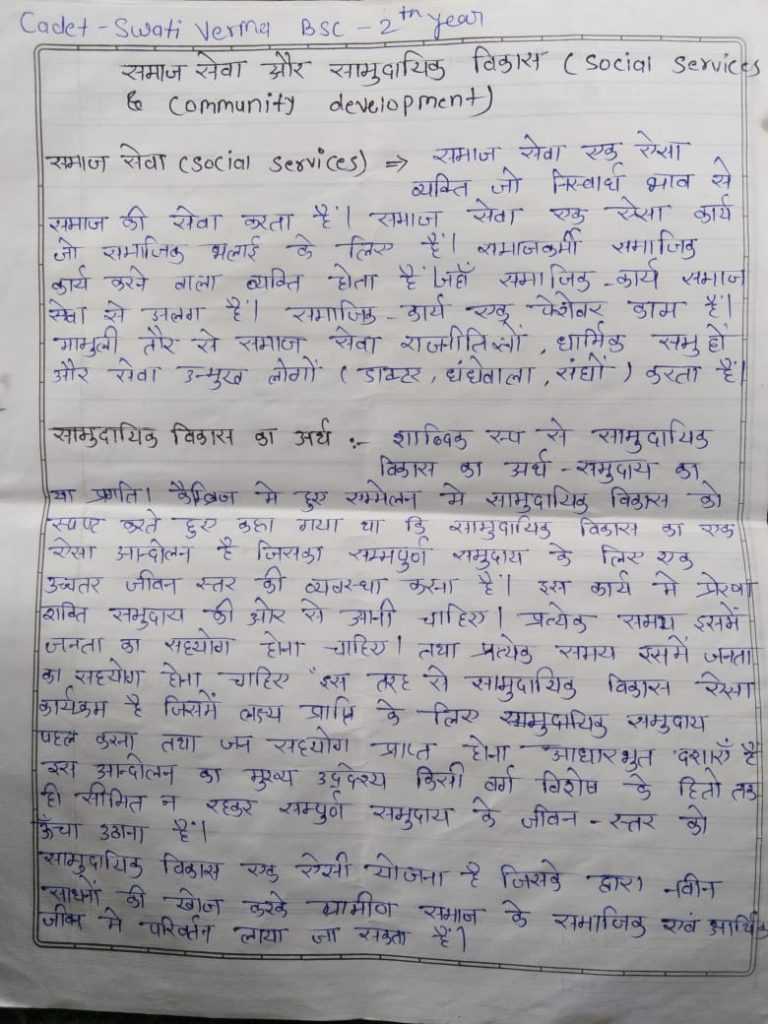 Cadet - Swati Verma BSC - 2th year
समाज सेवा और सामुदायिक विकास ( Social Services
& Community development)
समाज सेवा (Social Services) ⇒ समाज सेवा एक ऐसा
व्यक्ति जो निस्वार्थ भाव से
समाज की सेवा करता हैं। समाज सेवा एक ऐसा कार्य
जो समाजिक भलाई के लिए हैं। समाजकर्मी समाजिक
कार्य करने वाला व्यक्ति होता हैं जहाँ समाजिक - कार्य समाज
सेवा से अलग हैं। समाजिक - कार्य एक पेशेवर काम हैं।
मामुली तौर से समाज सेवा राजनीतिज्ञों , धार्मिक समुहों
और सेवा उन्मुख लोगों ( डाक्टर , धंधेवाला , संघों ) करता हैं।
सामुदायिक विकास का अर्थ :- शाब्दिक रूप से सामुदायिक
विकास का अर्थ - समुदाय का
या प्रगति। कैम्ब्रिज मे हुए सम्मेलन मे सामुदायिक विकास को
स्पष्ट करते हुए कहा गया था कि सामुदायिक विकास का एक
ऐसा आन्दोलन है जिसका सम्मपुर्ण समुदाय के लिए एक
उच्चतर जीवन स्तर की व्यवस्था करना हैं। इस कार्य मे प्रेरणा
शक्ति समुदाय की ओर से आनी चाहिए। प्रत्येक समय इसमें
जनता का सहयोग होना चाहिए। तथा प्रत्येक समय इसमें जनता
का सहयोग होना चाहिए इस तरह से सामुदायिक विकास ऐसा
कार्यकम है जिसमें लक्ष्य प्राप्ति के लिए सामुदायिक समुदाय
पहल करना तथा जन सहयोग प्राप्त होना आधारभुत दशाएँ है
इस आन्दोलन का मुख्य उद्देश्य किसी वर्ग विशेष के हितो तक
ही सीमित न रहकर सम्पुर्ण समुदाय के जीवन - स्तर को
ऊँचा उठाना हैं।
सामुदायिक विकास एक ऐसी योजना है जिसके द्वारा नवीन
साधनों की खोज करके ग्रामीण समाज के समाजिक एवं आर्थिक
जीवन मे परिवर्तन लाया जा सकता हैं।